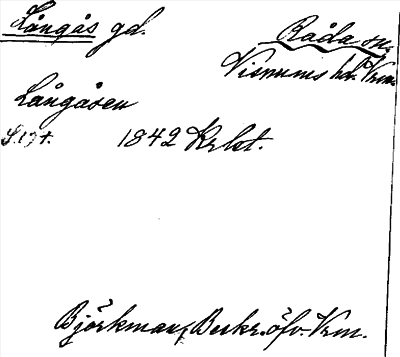 Långås gd.
Råda sn.
Visnums hd. Vrm.
Långåsen
1842 Krlst.
Björkman, Beskr. öfv. Vrm.